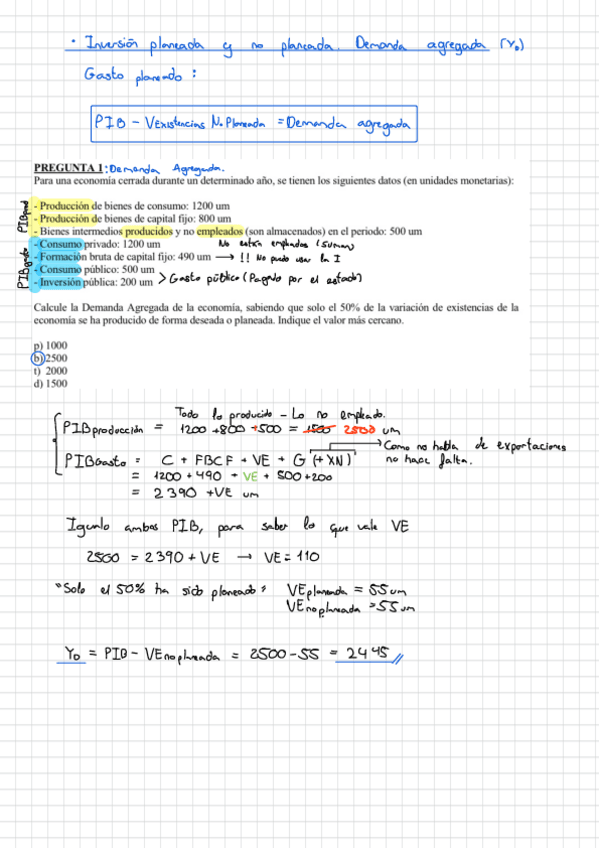 · Inversión planeada y no planeada. Demanda agregada (Y₀)
Gasto planeado :
PIB - VExistencias N. Planeada = Demanda agregada
PREGUNTA 1: Demanda Agregada.
Para una economía cerrada durante un determinado año, se tienen los siguientes datos (en unidades monetarias):
PIBprod
- Producción de bienes de consumo: 1200 um
- Producción de bienes de capital fijo: 800 um
- Bienes intermedios producidos y no empleados (son almacenados) en el periodo: 500 um
PIBgasto
- Consumo privado: 1200 um No están empleados (suman)
- Formación bruta de capital fijo: 490 um → !! No puedo usar la I
- Consumo público: 500 um
- Inversión pública: 200 um > Gasto público (Pagado por el estado)
Calcule la Demanda Agregada de la economía, sabiendo que solo el 50% de la variación de existencias de la
economía se ha producido de forma deseada o planeada. Indique el valor más cercano.
p) 1000
b) 2500
t) 2000
d) 1500
Todo lo producido - Lo no empleado.
PIBproducción = 1200 + 800 + 500 = 1500 2500 um
→ Como no habla de exportaciones
PIBGasto = C + FBCF + VE + G (+ XN) no hace falta.
= 1200 + 490 + VE + 500 + 200
= 2390 + VE um
Igualo ambos PIB, para saber lo que vale VE
2500 = 2390 + VE → VE = 110
"Solo el 50% ha sido planeado" VEplaneada = 55 um
VEno planeada = 55 um
Y₀ = PIB - VEno planeada = 2500 - 55 = 2445 //